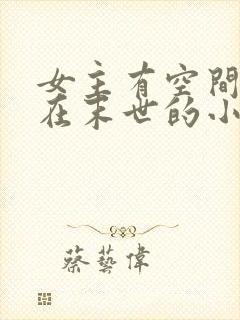 女主有空間
在末世的小
蔡藝偉